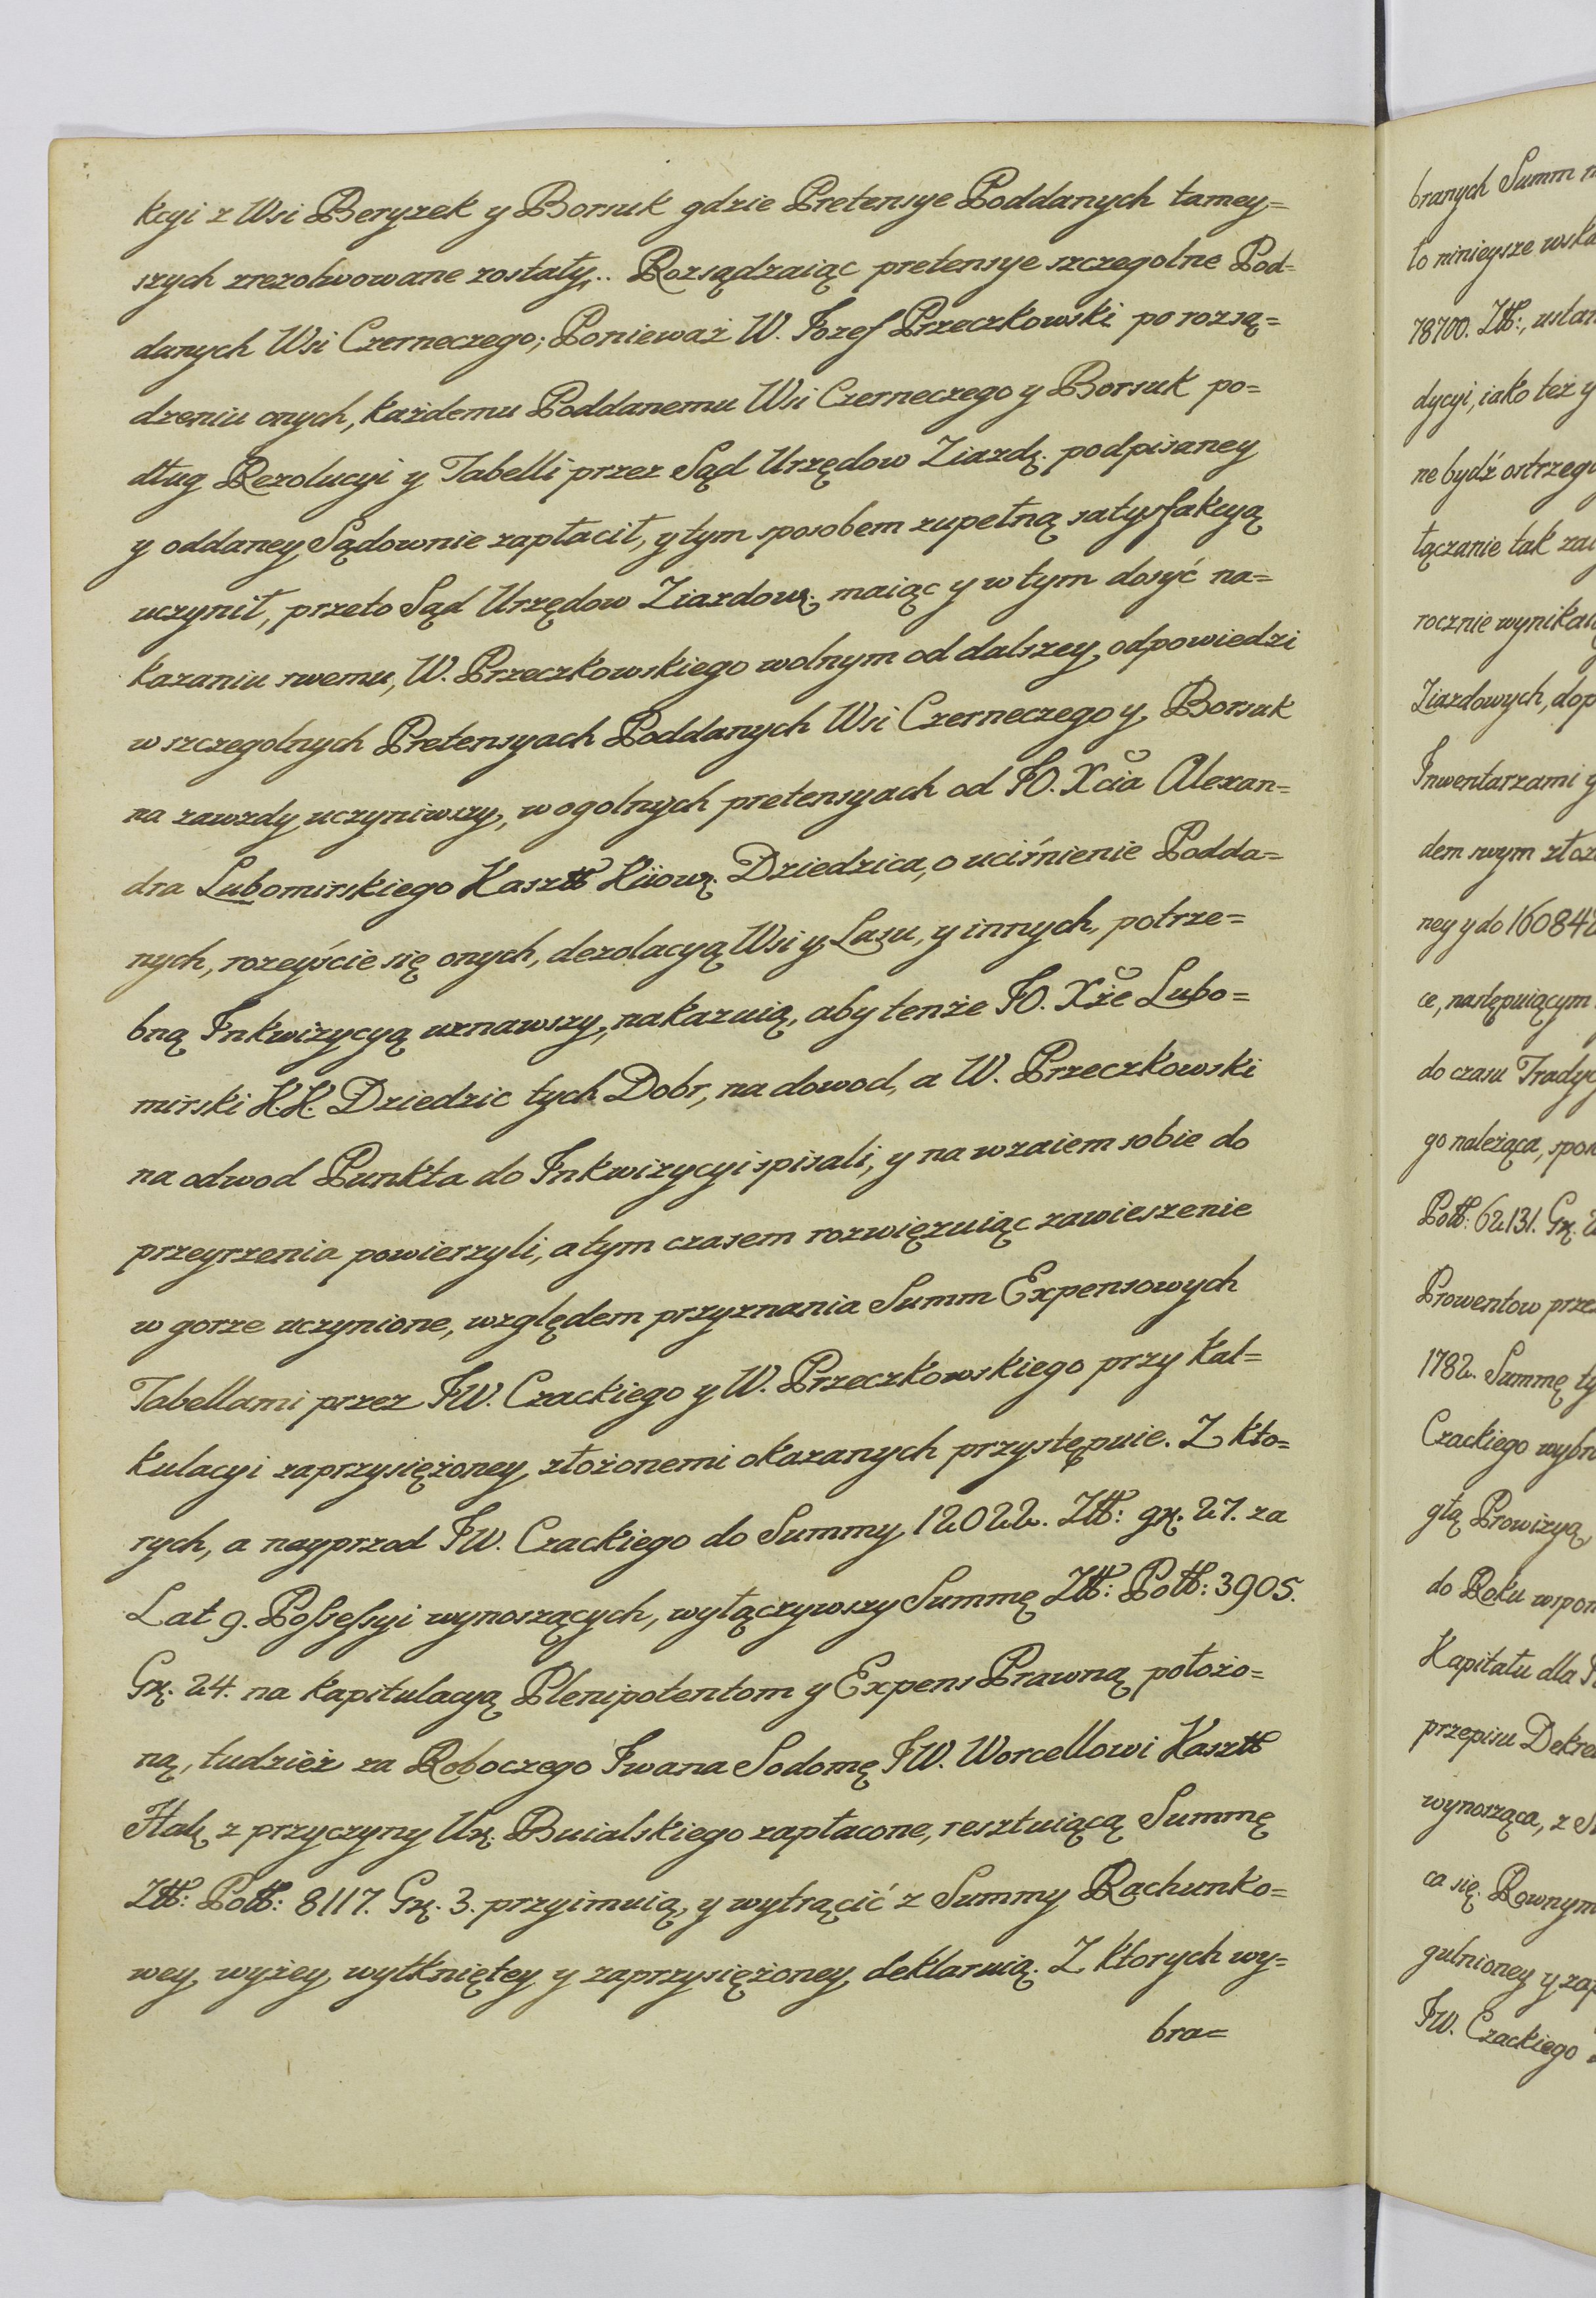 kcyi z Wsi Beryzek y Borsuk gdzie Pretensye Poddanych tamey=
szych zrezolwowane zostały,.. Rozsądzaiąc pretensye szczegolne Pod=
danych Wsi Czerneczego; Ponieważ W. Jozef Przeczkowski po rozsą=
dzeniu onych, każdemu Poddanemu Wsi Czerneczego y Borsuk po=
dług Rezolucyi y Tabelli przez Sąd Urzędow Ziazdę. podpisaney
y oddaney Sądownie zapłacił, y tym sposobem zupełną satysfakcyą
uczynił, przeto Sąd Urzędow Ziazdowę. maiąc y w tym dosyć na=
kazaniu swemu, W. Przeczkowskiego wolnym od dalszey odpowiedzi
w szczegolnych Pretensyach Poddanych Wsi Czerneczego y Borsuk
na zawzdy uczyniwszy, w ogolnych pretensyach od JO. Xcia Alexan=
dra Lubomirskiego Kasztt Kiiowę. Dziedzica, o uciśnienie Podda=
nych, rozeyście się onych, dezolacyą Wsi y Lasu, y innych, potrze=
bną Inkwizycyą uznawszy, nakazuią, aby tenże JO. Xże Lubo=
mirski K.K. Dziedzic tych Dobr, na dowod, a W. Przeczkowski
na odwod Punkta do Inkwizycyi spisali, y na wzaiem sobie do
przeyrzenia powierzyli, a tym czasem rozwięzuiąc zawieszenie
w gorze uczynione, względem przyznania Summ Expensowych
Tabellami przez JW. Czackiego y W. Przeczkowskiego przy Kal=
kulacyi zaprzysiężoney złożonemi okazanych przystępuie. Z kto=
rych, a nayprzod JW. Czackiego do Summy 12022. Ztt: gr. 27. za
Lat 9. Possessyi wynoszących, wyłączywszy Summę Ztt: Pott: 3905.
Gr. 24. na kapitulacyą Plenipotentom y Expens Prawną położo=
ną, tudzież za Roboczego Iwana Sodomę JW. Worcellowi Kasztt
Hal. z przyczyny Ur. Buialskiego zapłacone, resztuiącą Summę
Ztt: Pott: 8117. Gr. 3. przyimuią, y wytrącić z Summy Rachunko=
wey, wyżey wytkniętey y zaprzysiężoney deklaruią. Z ktorych wy=
bra=
branych Summ
to ninieysze
78700. Ztt:,
dycyi, iako też y
ne bydź
łączanie tak
rocznie
Ziazdowych,
Inwentarzami
dem swym
ney y do
ce, następuiącym
do czasu
go należąca,
Pott: 62131. Gr.
Prowentow
1782. Summę
Czackiego
głą Prowizyą,
do Roku
Kapitału dla
przepisu
wynosząca, z
ca się. Rownym
gulnioney y
JW. Czackiego